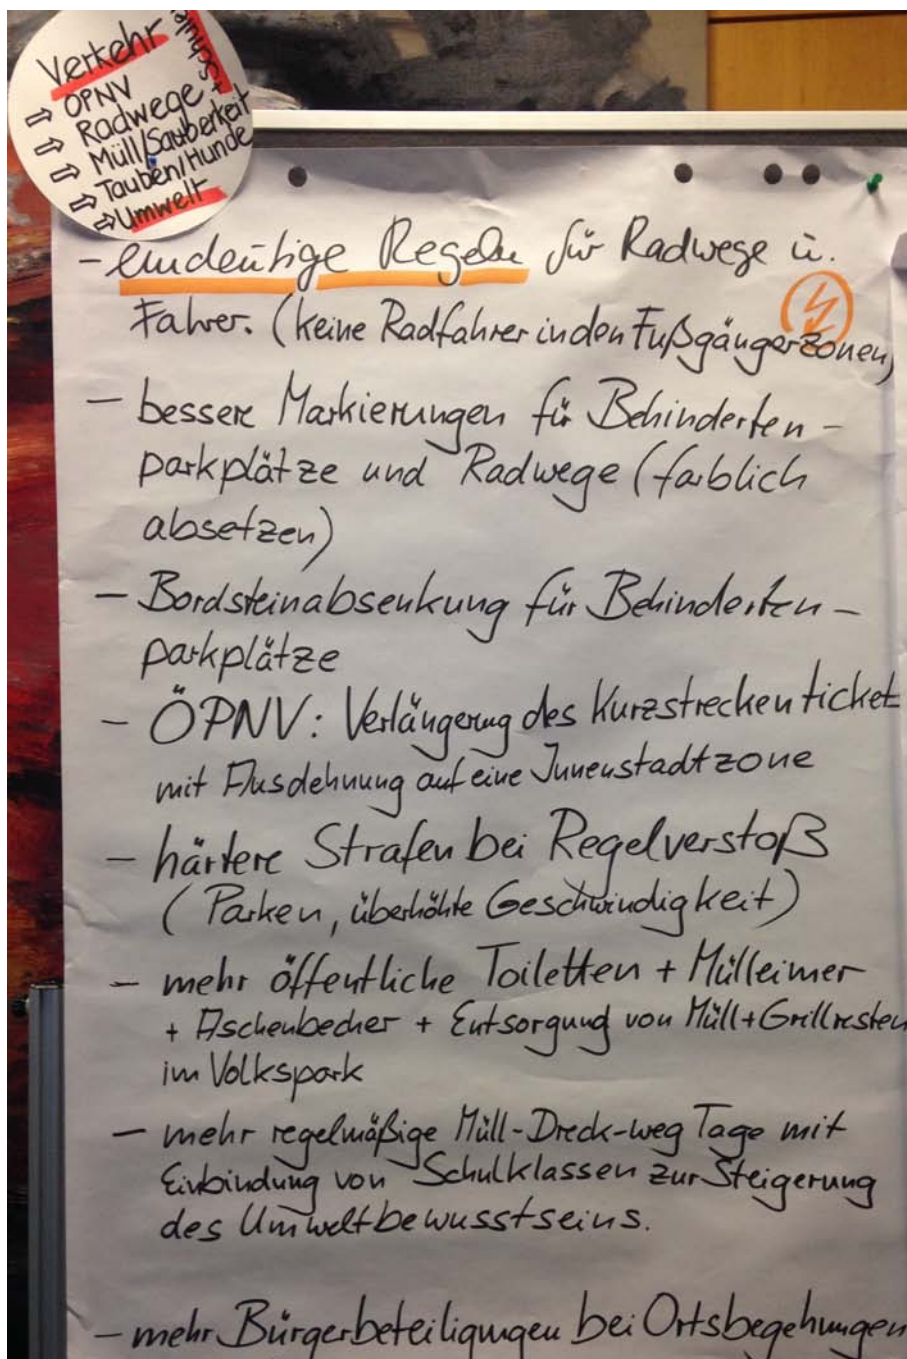 Verkehr
+Schule
⇨ ÖPNV
⇨ Radwege +
⇨ Müll/Sauberkeit
⇨ Tauben/Hunde
⇨ Umwelt
- eindeutige Regeln für Radwege u.
Fahrer. (keine Radfahrer in den Fußgängerzonen)
- bessere Markierungen für Behinderten-
parkplätze und Radwege (farblich
absetzen)
- Bordsteinabsenkung für Behinderten-
parkplätze
- ÖPNV: Verlängerung des Kurzstreckenticket
mit Ausdehnung auf eine Innenstadtzone
- härtere Strafen bei Regelverstoß
(Parken, überhöhte Geschwindigkeit)
- mehr öffentliche Toiletten + Mülleimer
+ Aschenbecher + Entsorgung von Müll+Grillresten
im Volkspark
- mehr regelmäßige Müll-Dreck-weg Tage mit
Einbindung von Schulklassen zur Steigerung
des Umweltbewusstseins.
- mehr Bürgerbeteiligungen bei Ortsbegehungen